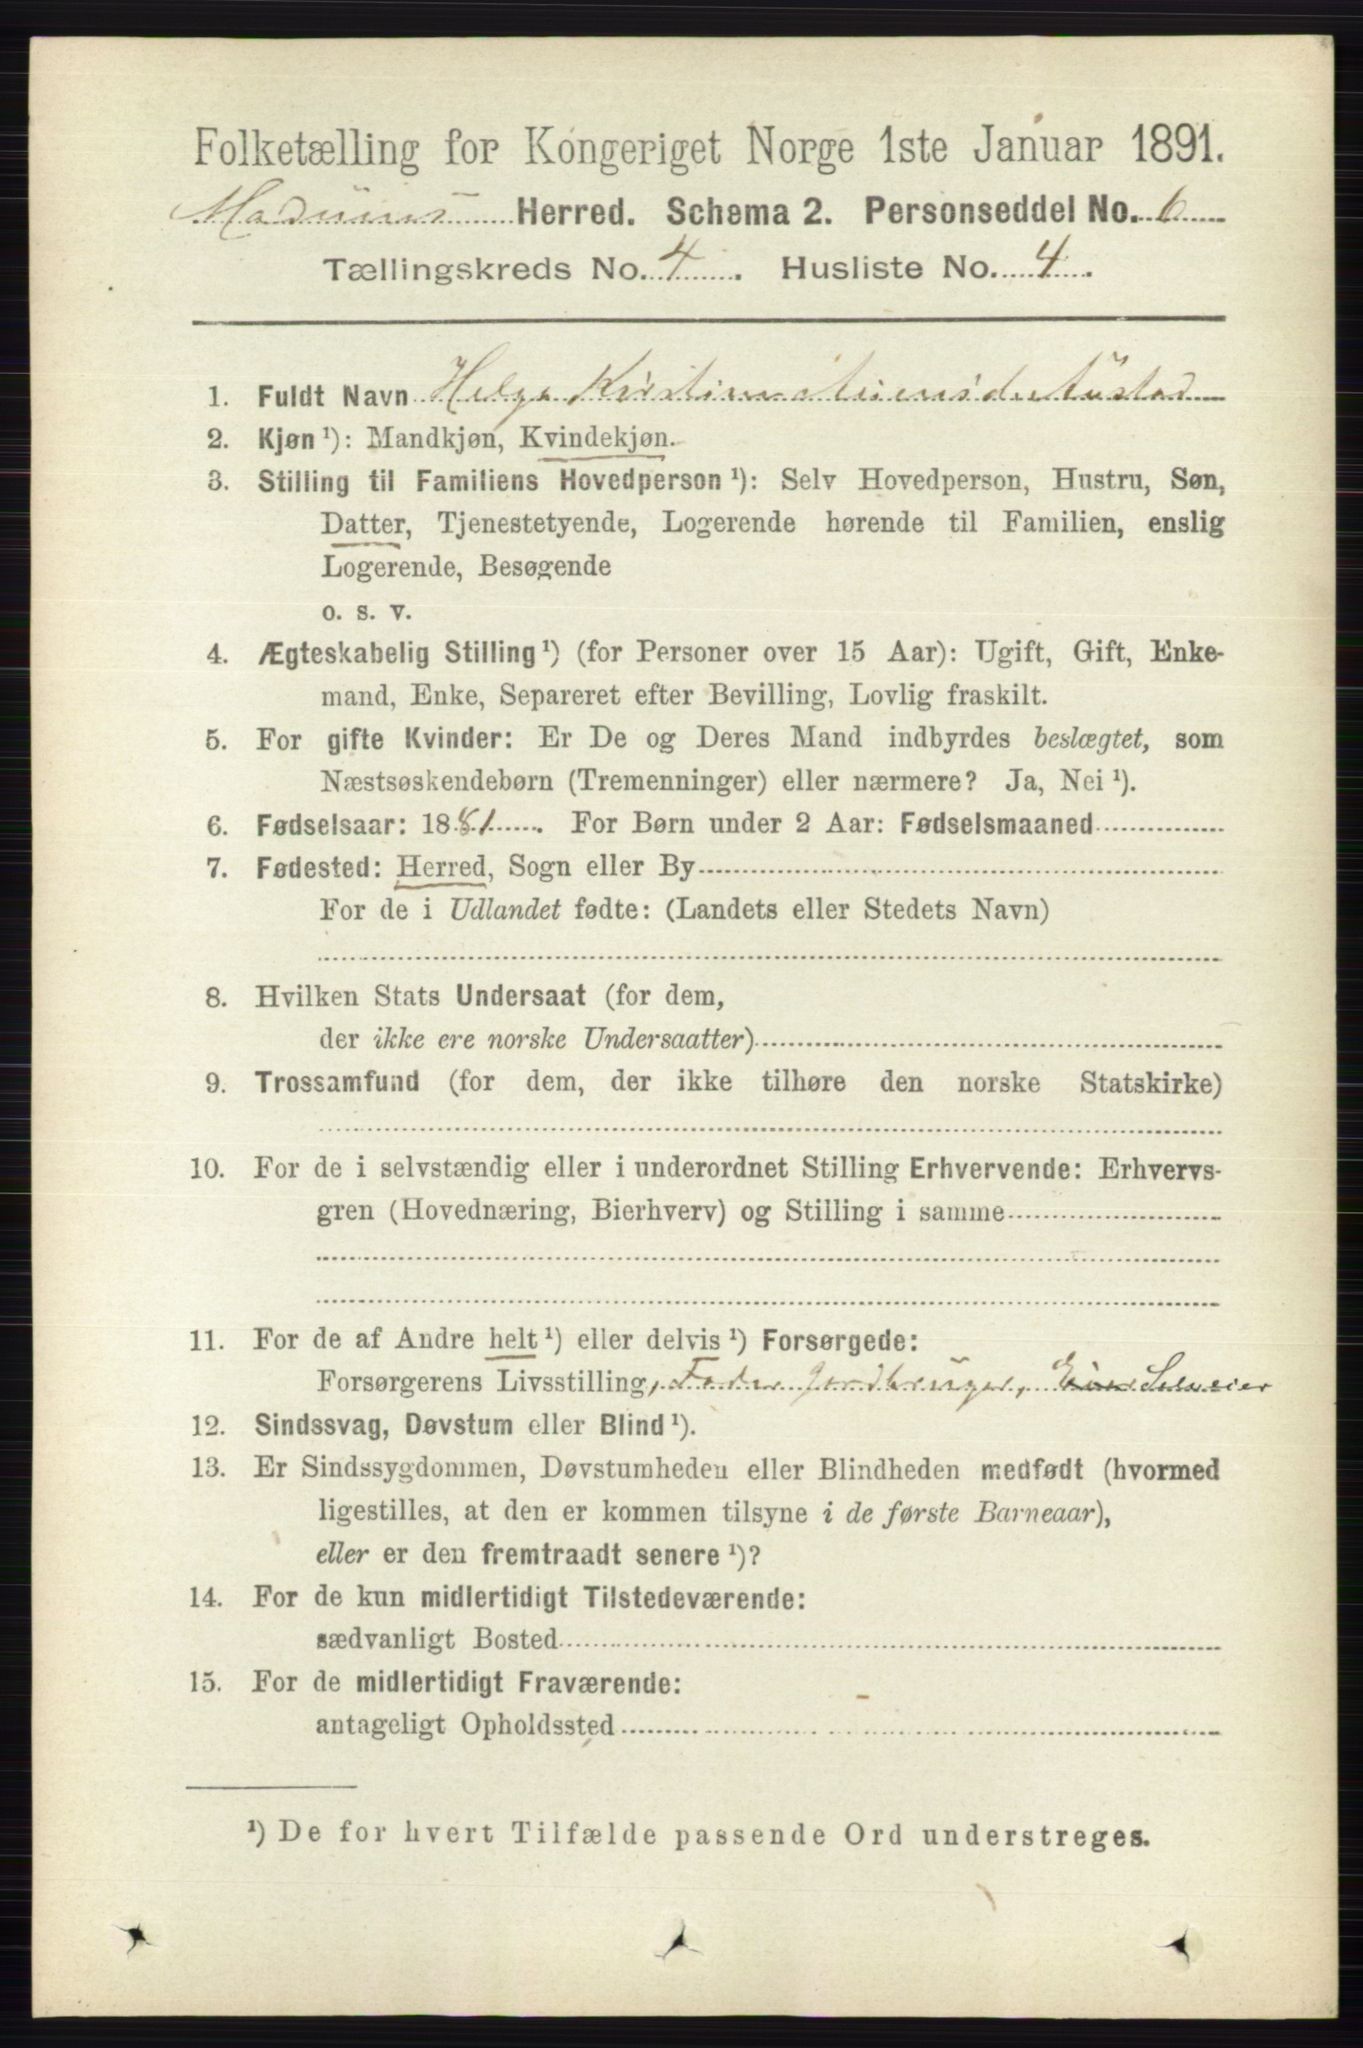 Folketælling for Kongeriget Norge 1ste Januar 1891.
Modums Herred. Schema 2. Personseddel No. 6
Tællingskreds No. 4. Husliste No. 4.
1. Fuldt Navn Helga Kristine
2. Kjøn ¹): Mandkjøn, Kvindekjøn.
3. Stilling til Familiens Hovedperson ¹): Selv Hovedperson, Hustru, Søn,
Datter, Tjenestetyende, Logerende hørende til Familien, enslig
Logerende, Besøgende
o. s. v.
4. Ægteskabelig Stilling ¹) (for Personer over 15 Aar): Ugift, Gift, Enke-
mand, Enke, Separeret efter Bevilling, Lovlig fraskilt.
5. For gifte Kvinder: Er De og Deres Mand indbyrdes beslægtet, som
Næstsøskendebørn (Tremenninger) eller nærmere? Ja, Nei ¹).
6. Fødselsaar: 1881. For Børn under 2 Aar: Fødselsmaaned
7. Fødested: Herred, Sogn eller By
For de i Udlandet fødte: (Landets eller Stedets Navn)
8. Hvilken Stats Undersaat (for dem,
der ikke ere norske Undersaatter)
9. Trossamfund (for dem, der ikke tilhøre den norske Statskirke)
10. For de i selvstændig eller i underordnet Stilling Erhvervende: Erhvervs-
gren (Hovednæring, Bierhverv) og Stilling i samme
11. For de af Andre helt ¹) eller delvis ¹) Forsørgede:
Forsørgerens Livsstilling, Fader Jordbruger, Selveier
12. Sindssvag, Døvstum eller Blind ¹).
13. Er Sindssygdommen, Døvstumheden eller Blindheden medfødt (hvormed
ligestilles, at den er kommen tilsyne i de første Barneaar),
eller er den fremtraadt senere ¹)?
14. For de kun midlertidigt Tilstedeværende:
sædvanligt Bosted
15. For de midlertidigt Fraværende:
antageligt Opholdssted
¹) De for hvert Tilfælde passende Ord understreges.